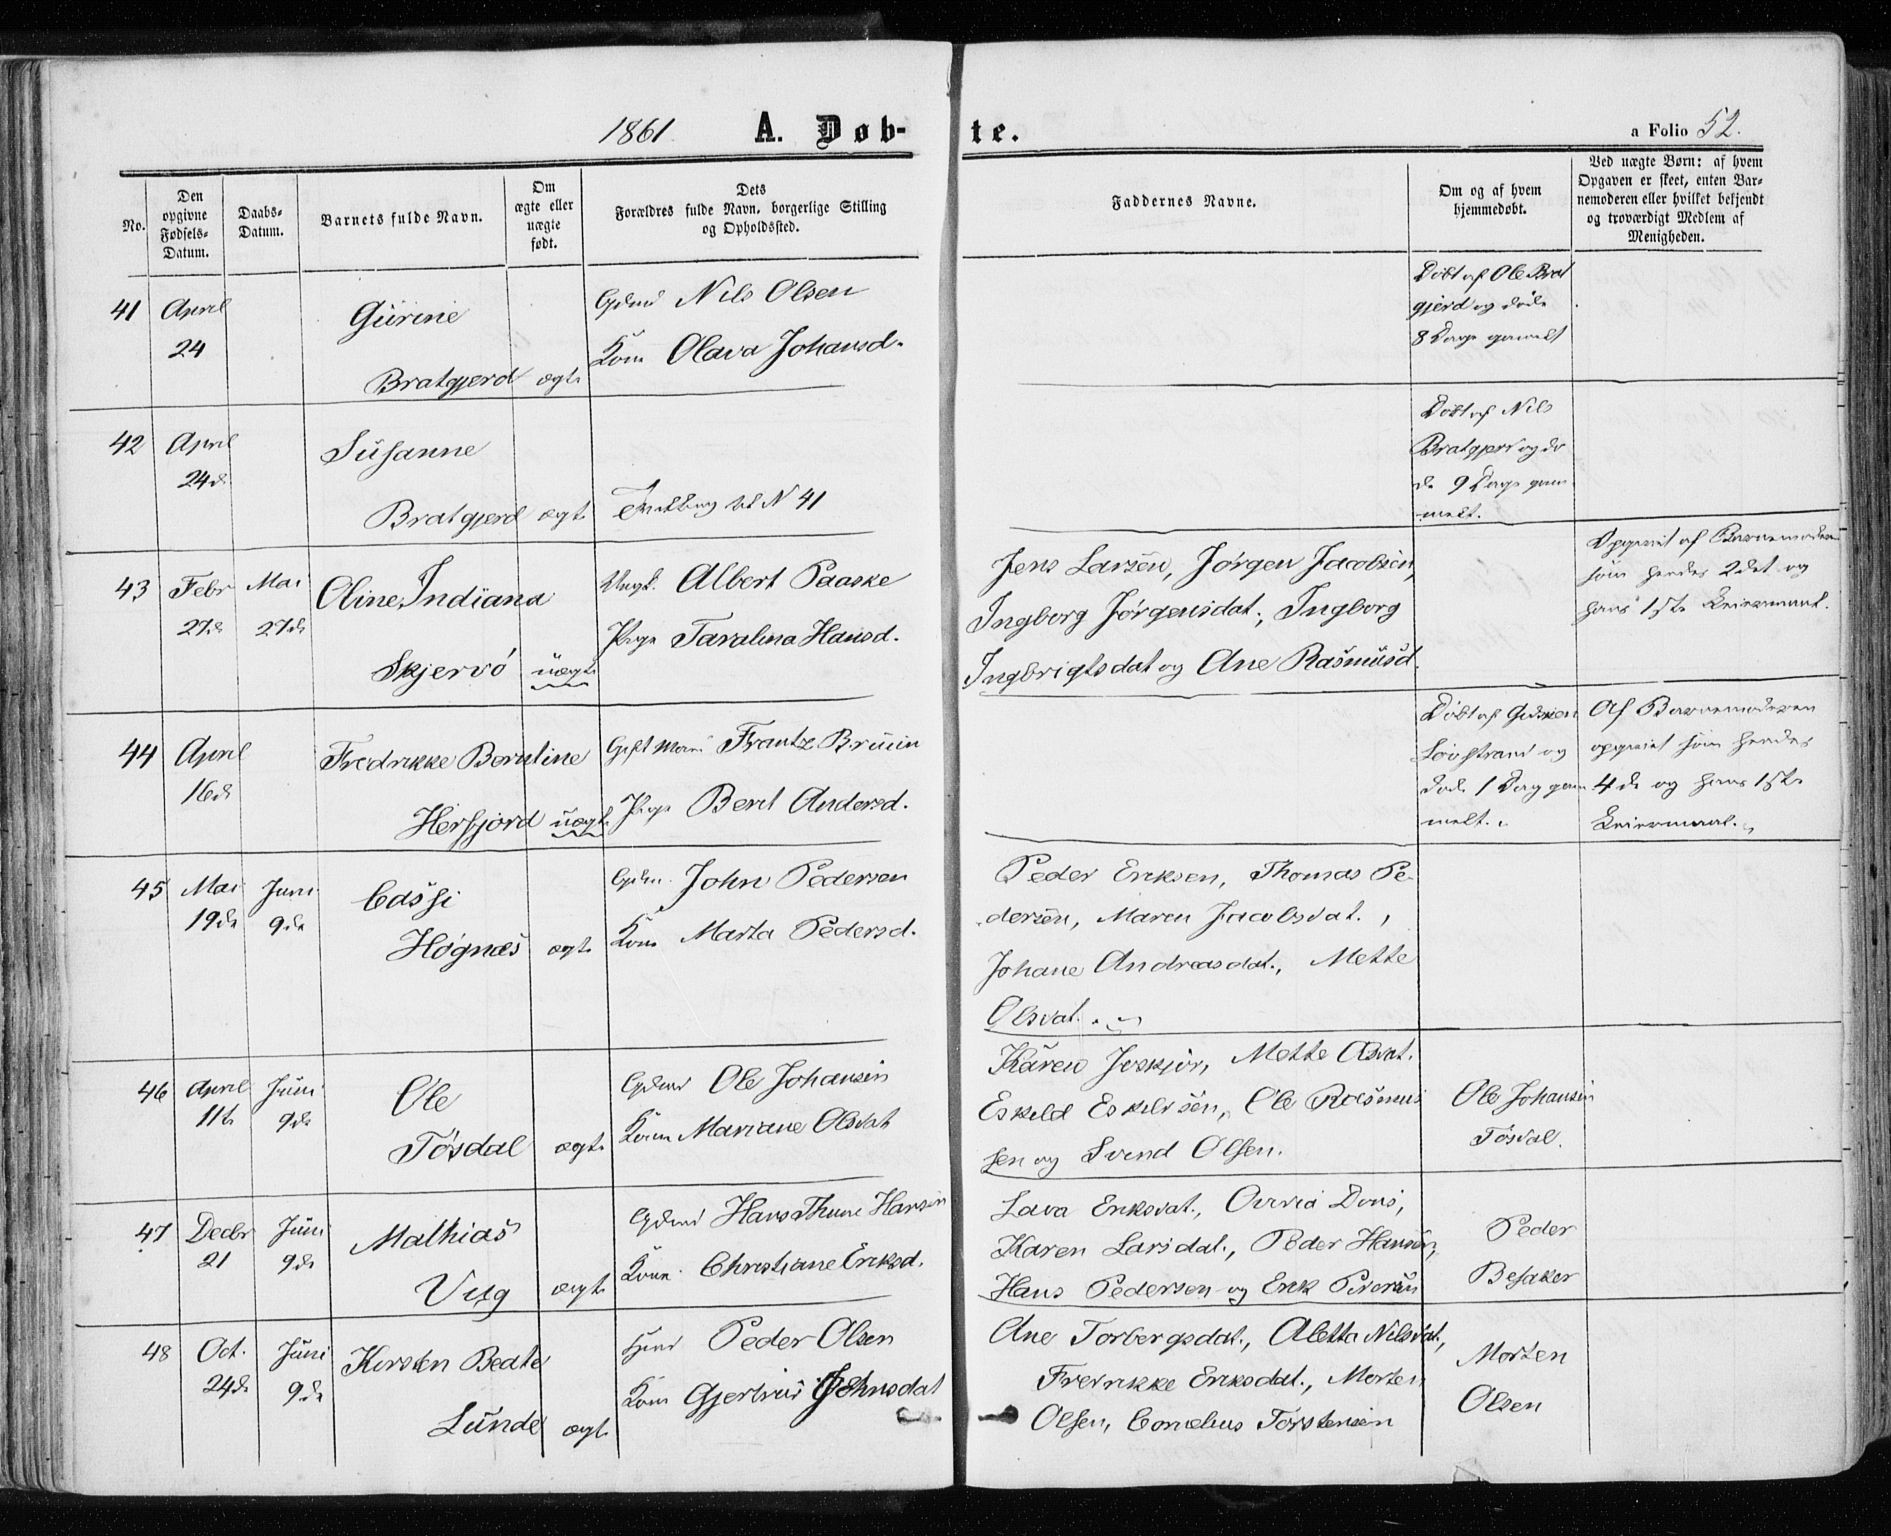 1861. A. Døb- te. a Folio 52.
No.
Den opgivne Fødsels-Datum.
Daabs-Datum.
Barnets fulde Navn.
Om ægte eller uægte født.
Dets Forældres fulde Navn, borgerlige Stilling og Opholdssted.
Faddernes Navne.
Om og af hvem hjemmedøbt.
Ved uægte Børn: af hvem Opgaven er skeet, enten Barnemoderen eller hvilket bekjendt og troværdigt Medlem af Menigheden.
41 April Gürine Gdmd Nils Olsen Døbt af Ole Brat
24 Kone Olava Johansd. gjerd og døde
Bratgjerd ægte 8 Dage gamelt
42 April Süsanne Døbt af Nils
24de Bratgjerd og dø
Bratgjerd ægte Tvilling til N 41 de 9 Dage gam
melt.
43 Febr Mai Oline Indiana Ungk. Albert Paaske Jens Larsen, Jørgen Jacobsen, Opgivet af Barnemoderen
27de 27de Pige Taralina Hansd. Ingborg Jørgensdat., Ingborg som hendes 2det og
Skjervö üægte Ingbrigtsdat og Ane Rasmüsd. hans 1ste Leiermaal.
44 April Fredrikke Berntine Gift Mand Frantz Brüün Døbt af Af Barnemoderen
16de Pige Berit Andersd. Løvstrand og opgivet som hendes
Herfjord üægte døde 1 Dag gam 4de og hans 1ste
melt. Leiermaal.
45 Mai Juni Gdm. John Pedersen Peder Eriksen, Thomas Pe
19de 9de Høgnæs ægte Kone Marta Pedersd. dersen, Maren Jacobsdat.,
Johane Andreasdat., Mette
Olsdat.
46 April Jüni Ole Gdmd Ole Johansen Karen Mette Olsdat.
11te 9de Kone Mariane Olsdat Eskeld Eskeldsen, Ole Rasmus Ole Johansen
Tösdal ægte sen og Svend Olsen. Tösdal.
47 Decbr Jüni Mathias Gdmd Hans Thune Hansen Lava Eriksdat., Dons,
21 9de Kone Christiane Eriksd. Karen Larsdat., Peder Hansen, Peder
Vüg ægte Hans Pedersen og Erik Pedersen Besaker
48 Oct. Jüni Kirsten Beate Hmd Peder Olsen Ane Torbergsdat., Aletta Nilsdat,
24de 9de Kone Gjertrud Johnsdat Fredrikke Eriksdat., Morten Morten
Lünde ægte Olsen, Cornelius Torstensen Olsen